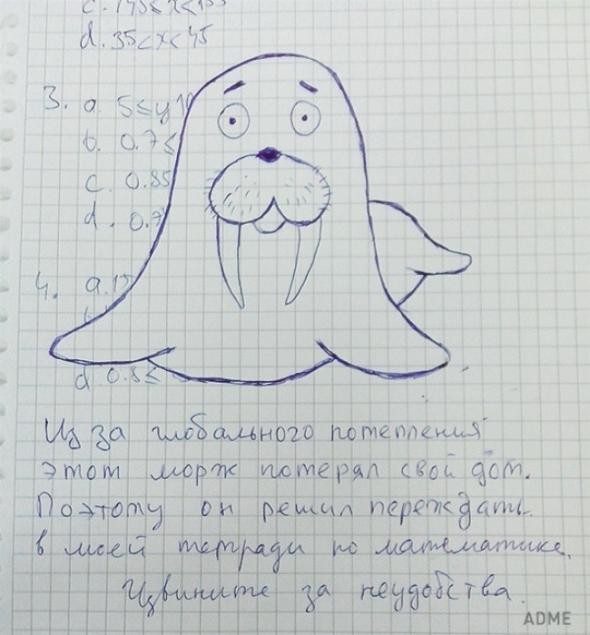 c. 145≤x≤155
d. 35<x<45
3. a. 5≤y
b. 0.7≤
c. 0.85
d. 0.7
4. a. 15
d 0.8≤
Из за глобального потепления
этот морж потерял свой дом.
Поэтому он решил переждать
в моей тетради по математике.
Извините за неудобства.
ADME